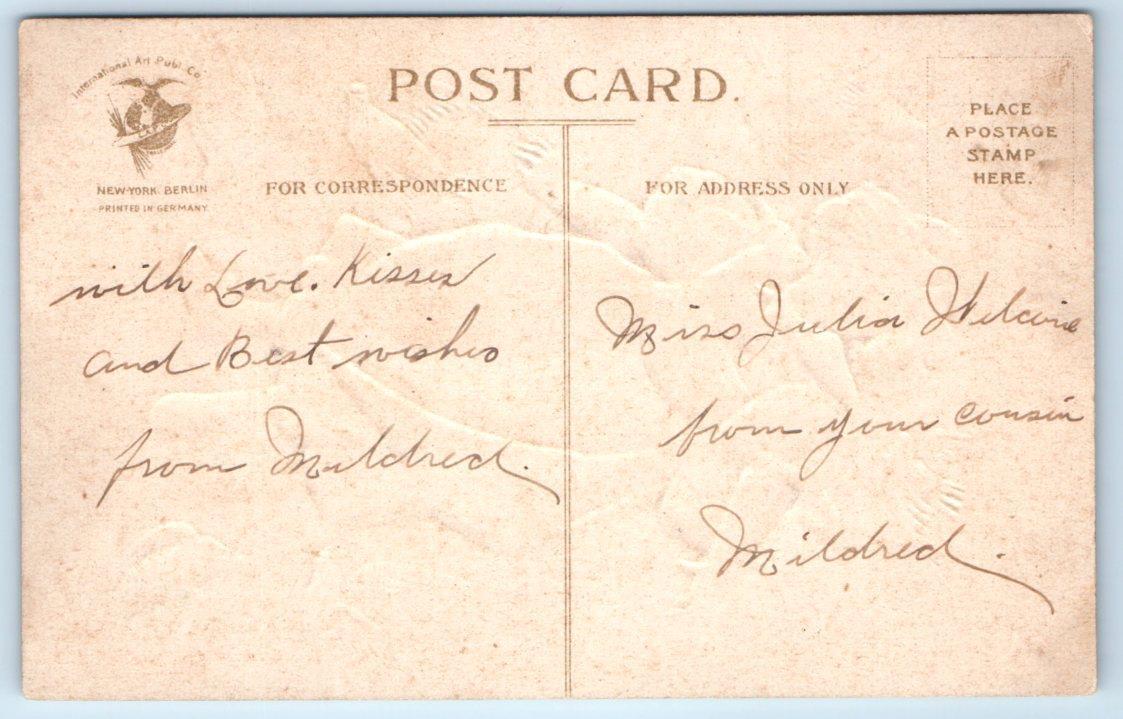 International Art Publ. Co.
NEW-YORK. BERLIN
PRINTED IN GERMANY
POST CARD.
FOR CORRESPONDENCE
FOR ADDRESS ONLY
PLACE
A POSTAGE
STAMP
HERE.
with Love. Kisses
and Best wishes
from Mildred.
Miss Julia
from your cousin
Mildred.